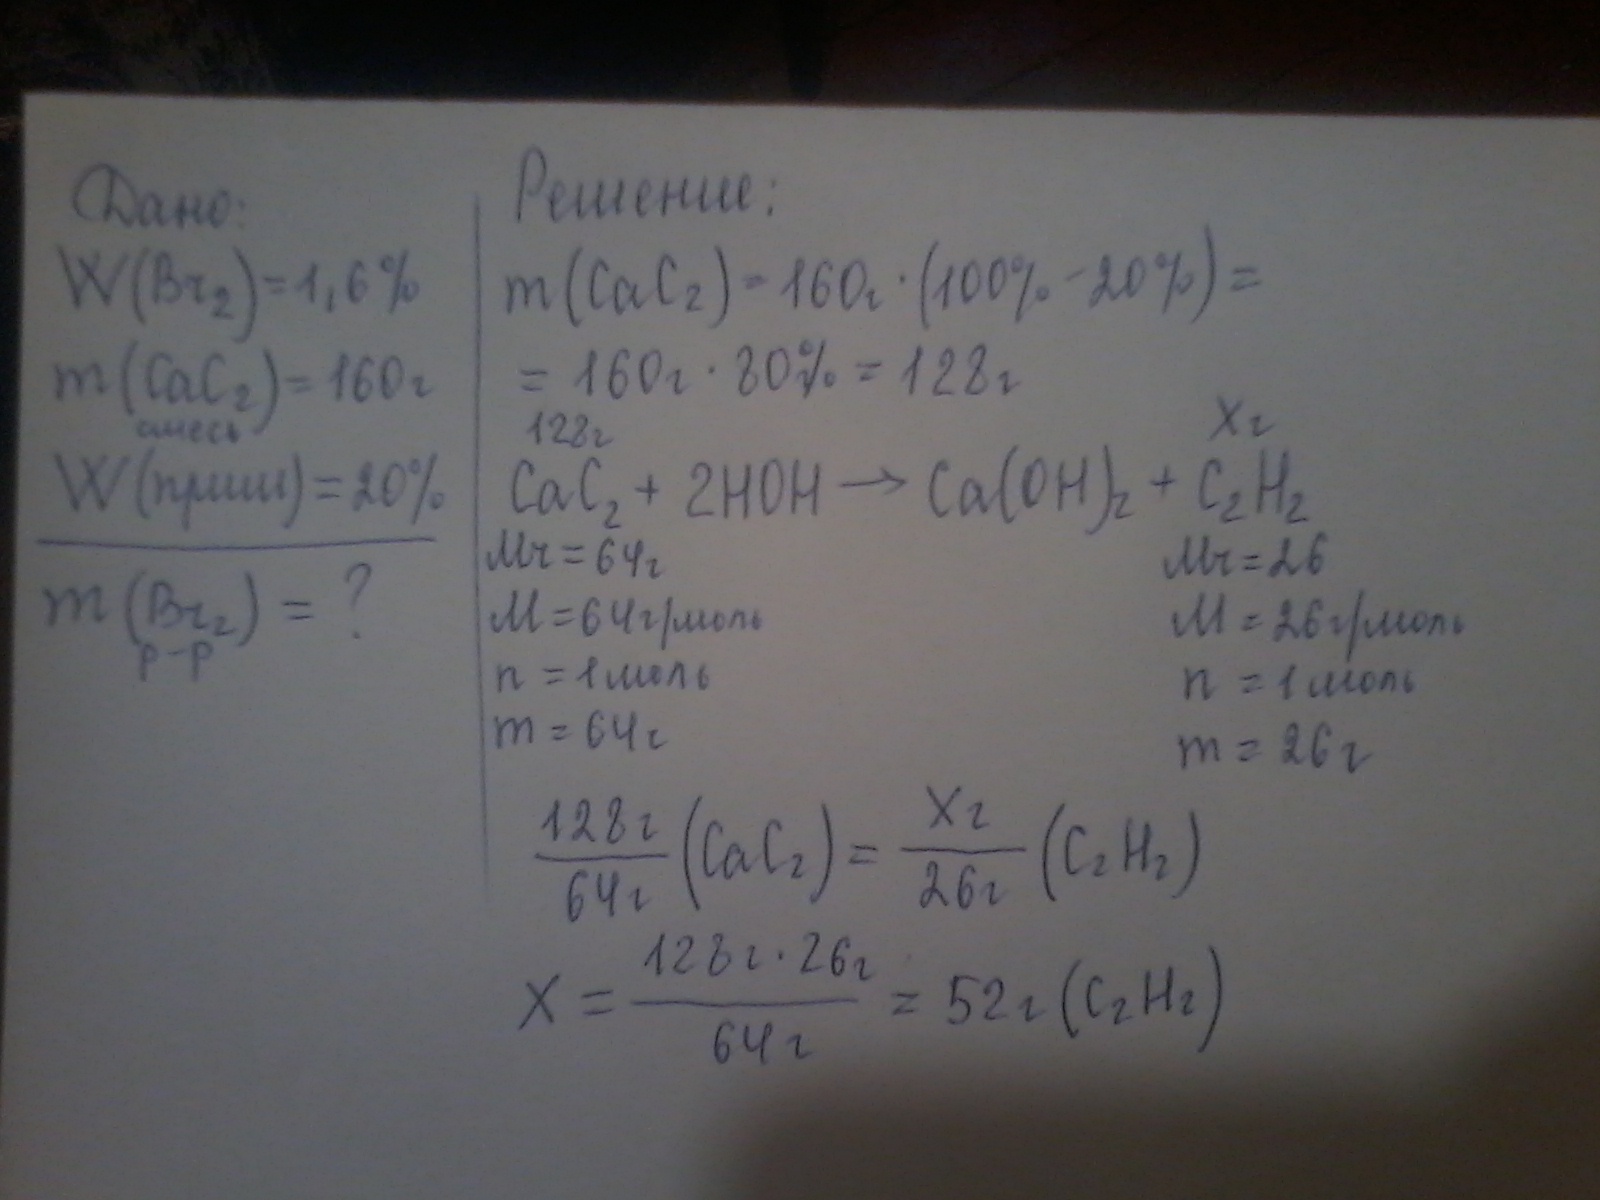 Дано:
W(Br₂)=1,6%
m(CaC₂)=160г
смесь
W(прим)=20%
m(Br₂) = ?
р-р
Решение:
m(CaC₂)=160г·(100%-20%)=
= 160г·80%=128г
128г Xг
CaC₂ + 2HOH → Ca(OH)₂ + C₂H₂
Mr=64г Mr=26
M=64г/моль M=26г/моль
n=1моль n=1моль
m=64г m=26г
128г/64г (CaC₂) = Xг/26г (C₂H₂)
X = 128г·26г/64г = 52г (C₂H₂)